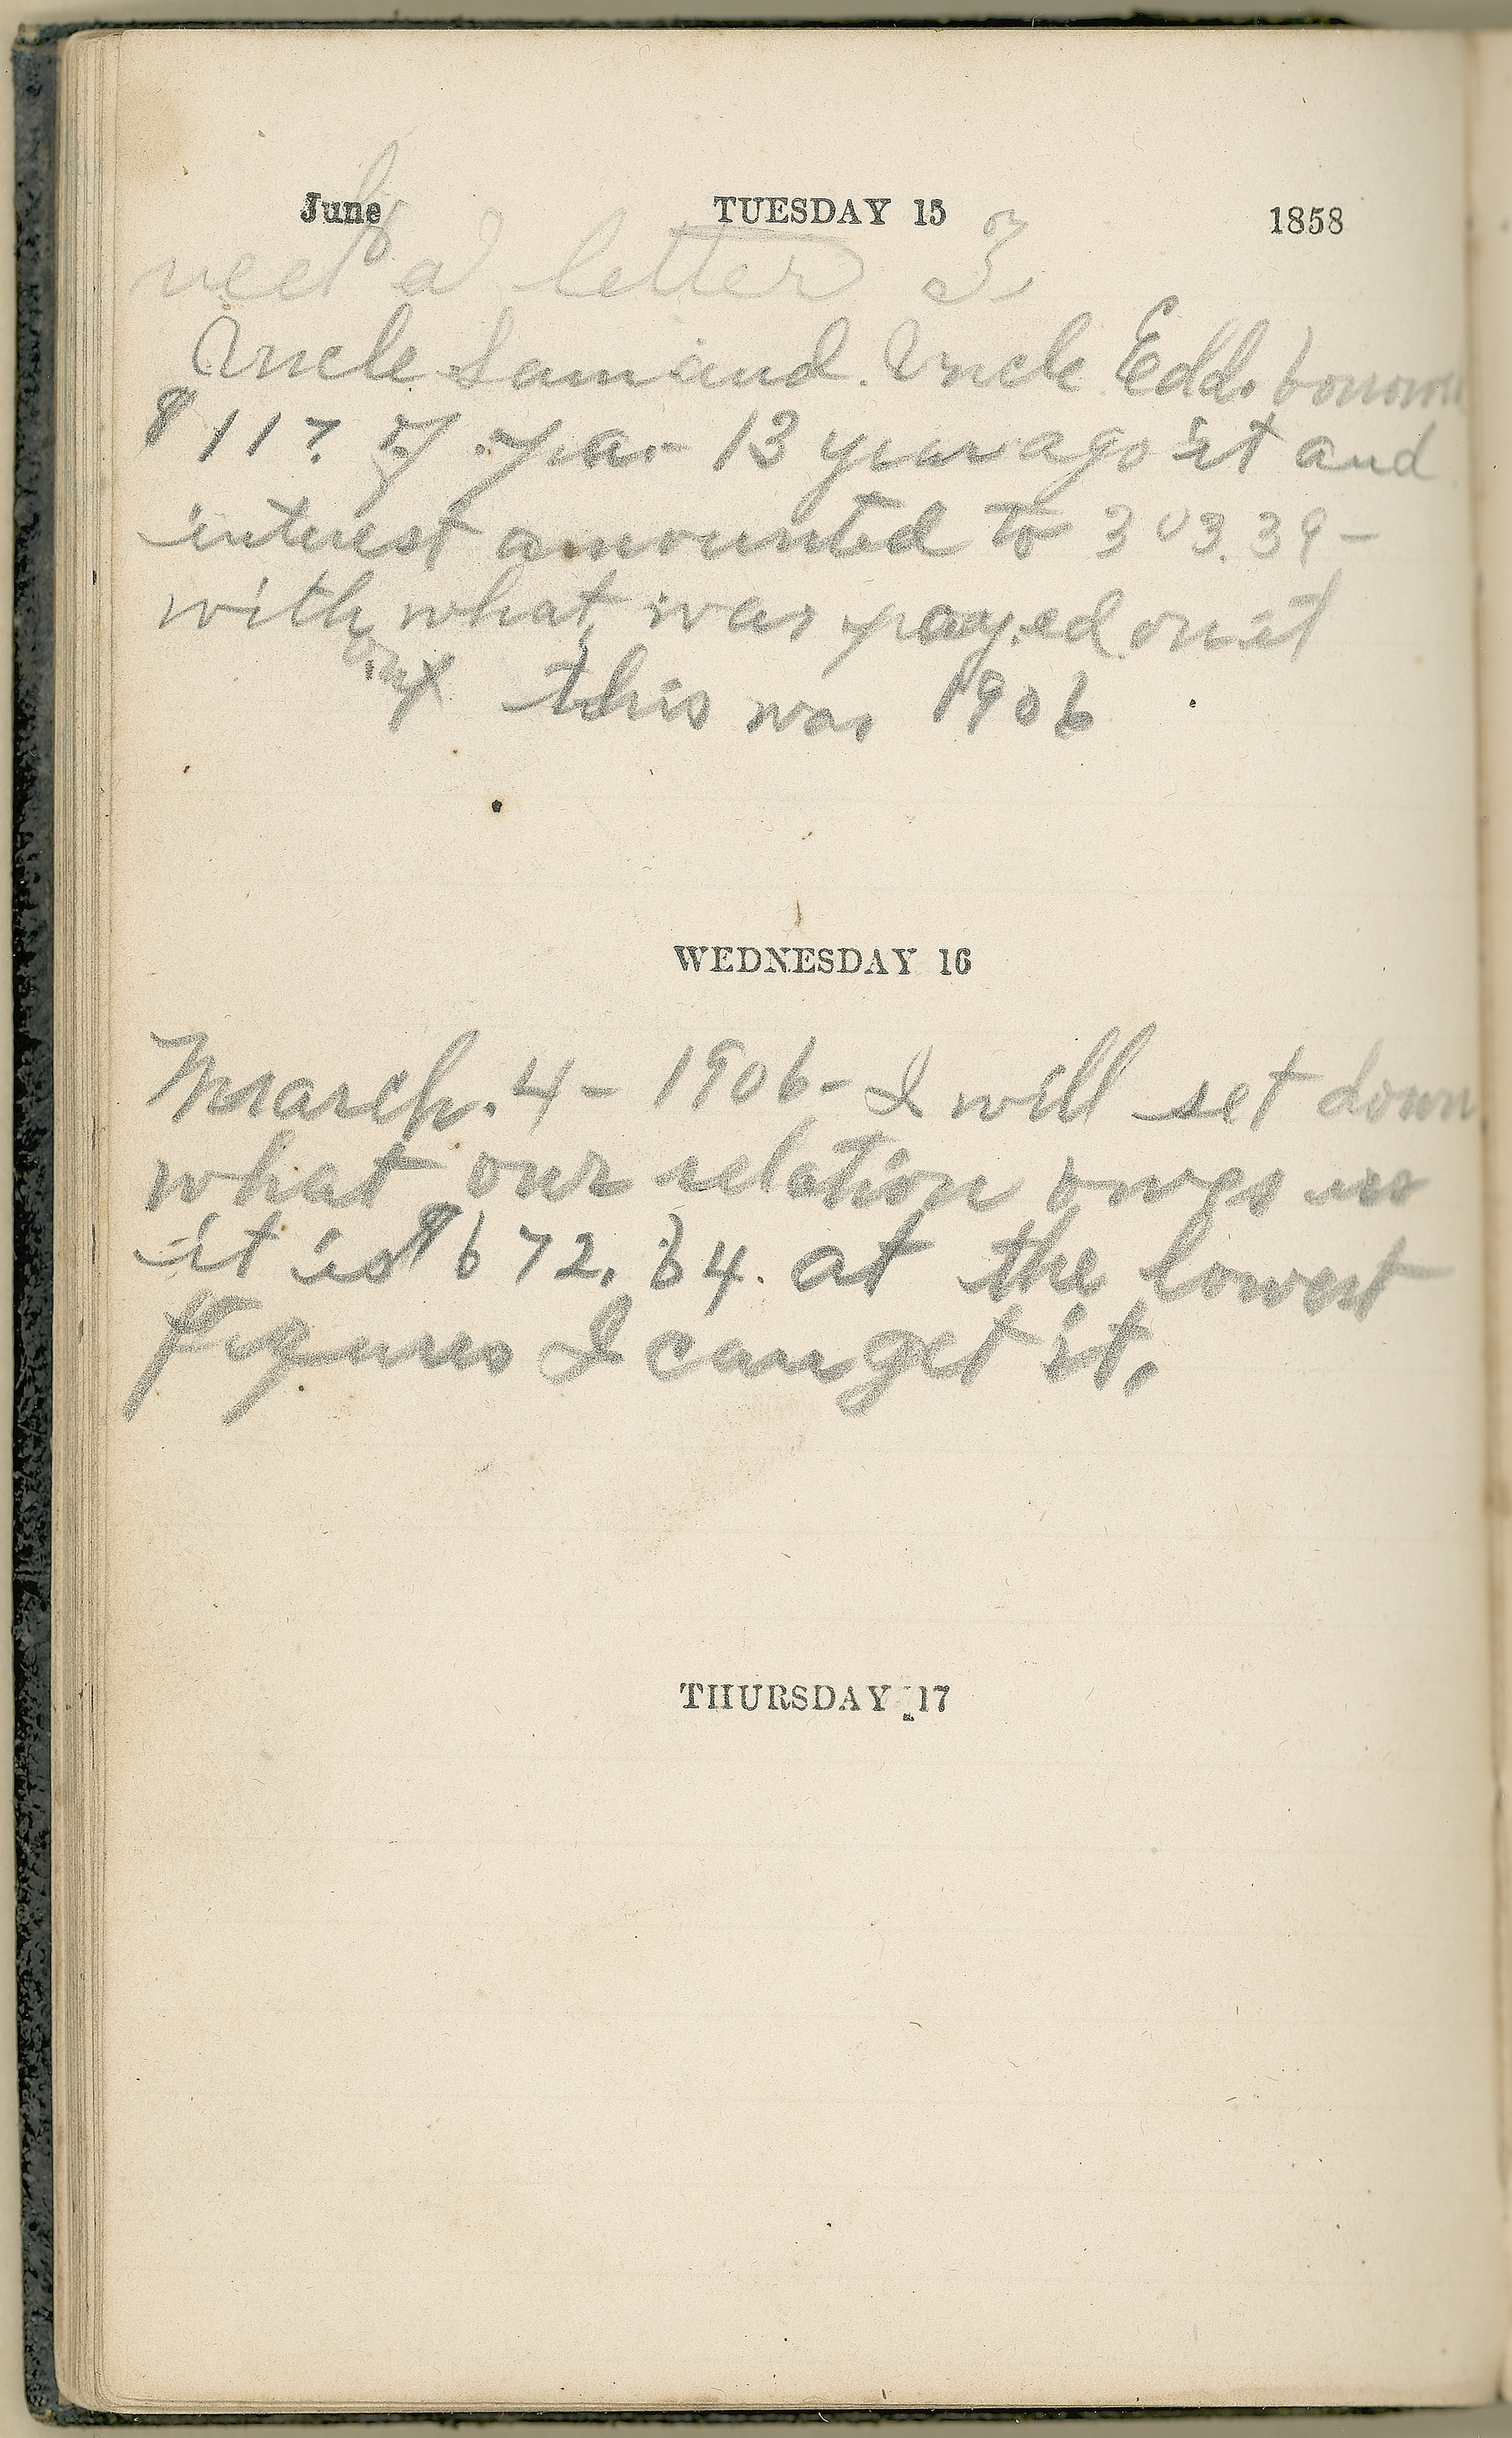 June TUESDAY 15 1858
a letter 3
Uncle Sam and Uncle Edd. borrow
$117. of pa. 13 years ago it and
interest amounted to 303.39 -
with what was payed on it
this was 1906
WEDNESDAY 16
March. 4 - 1906 - I will set down
what our relation owes us
it is $672.84. at the lowest
figures I can get it.
THURSDAY 17